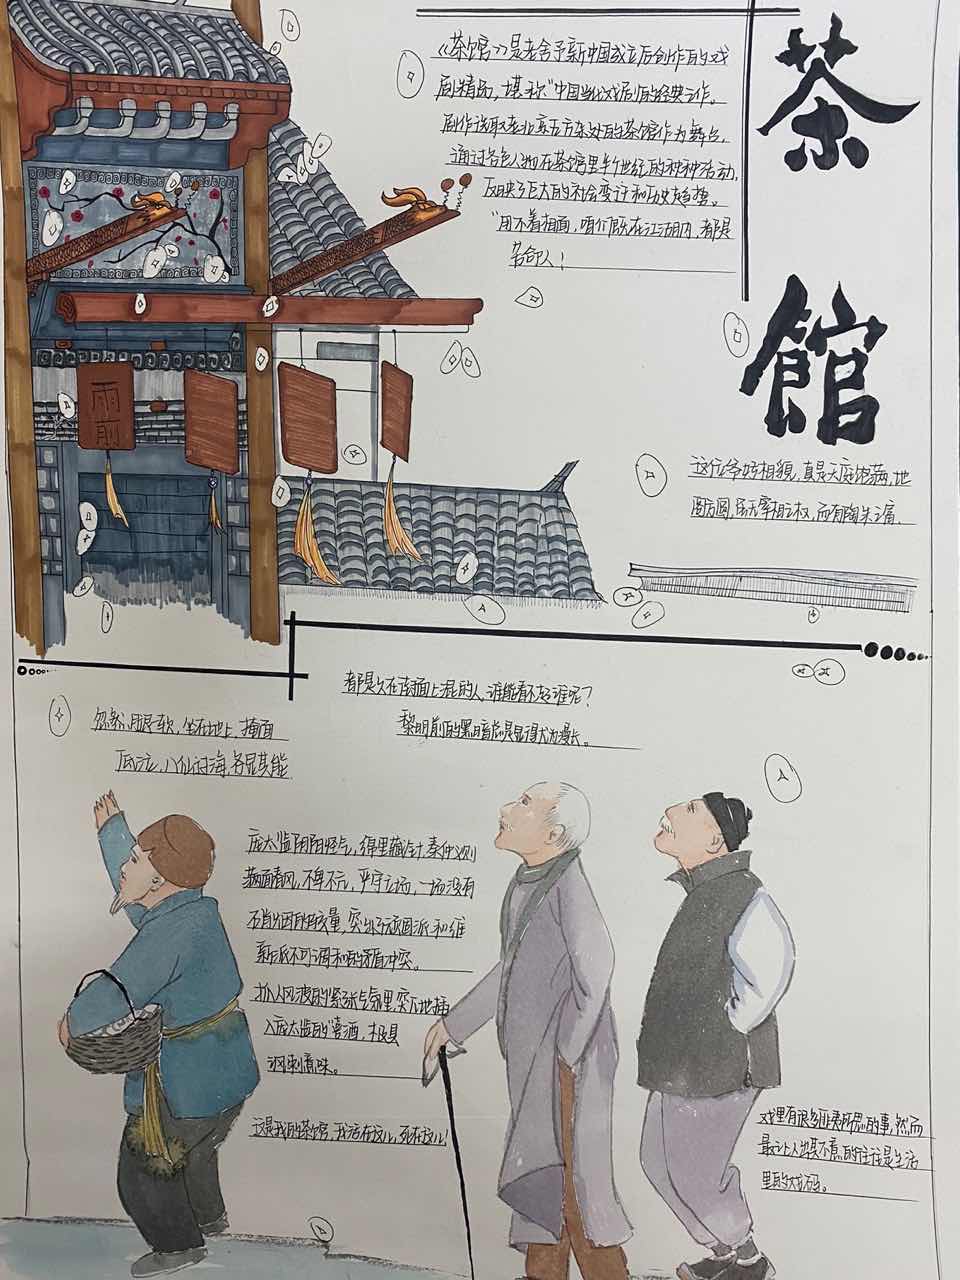 茶館
《茶馆》是老舍于新中国成立后创作的戏
剧精品，堪称"中国当代戏剧的经典之作。
剧作选取老北京五方杂处的茶馆作为舞点，
通过各色人物在茶馆里半个世纪的种种活动，
反映了巨大的社会变迁和历史趋势。
"用不着相面，咱们既在江湖内，都是
苦命人！
雨前
这位爷好相貌，真是天庭饱满，地
阁方圆，虽无宰相之权，而有陶朱之富。
都是久在街面上混的人，谁能看不起谁呢？
黎明前的黑暗总是显得尤为漫长。
忽然，腿软，坐在地上，掩面
低泣，八仙过海，各显其能
庞太监阴阳怪气，绵里藏针，秦仲义则
满面春风，不卑不亢，严守立场，一场没有
硝烟的较量，突出了顽固派和维
新派不可调和的矛盾冲突。
抓人风波的紧张气氛里突兀地插
入庞太监的喜酒，极具
讽刺意味。
这是我的茶馆，我活在这儿，死在这儿！
戏里有很多匪夷所思的事，然而
最让人出其不意的往往是生活
里的戏码。